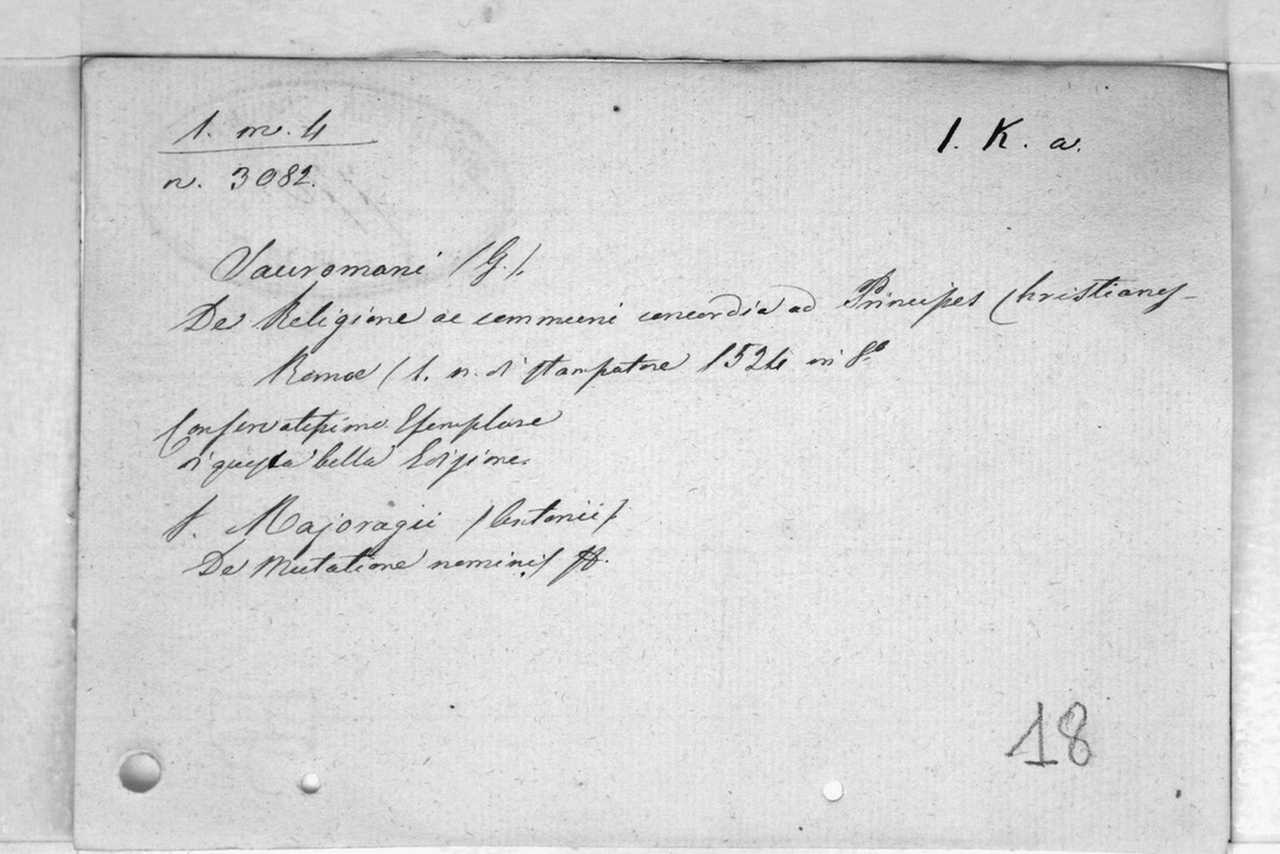 1. m. 4
I. K. a.
n. 3082.
Sauromani (G.).
De Religione ac communi concordia ad Principes Christianos -
Romae (s. n. di stampatore 1524 in 8.o
Conservatissimo Esemplare
di questa bella Edizione.
S. Majoragii (Antonii).
De Mutatione nominis
18